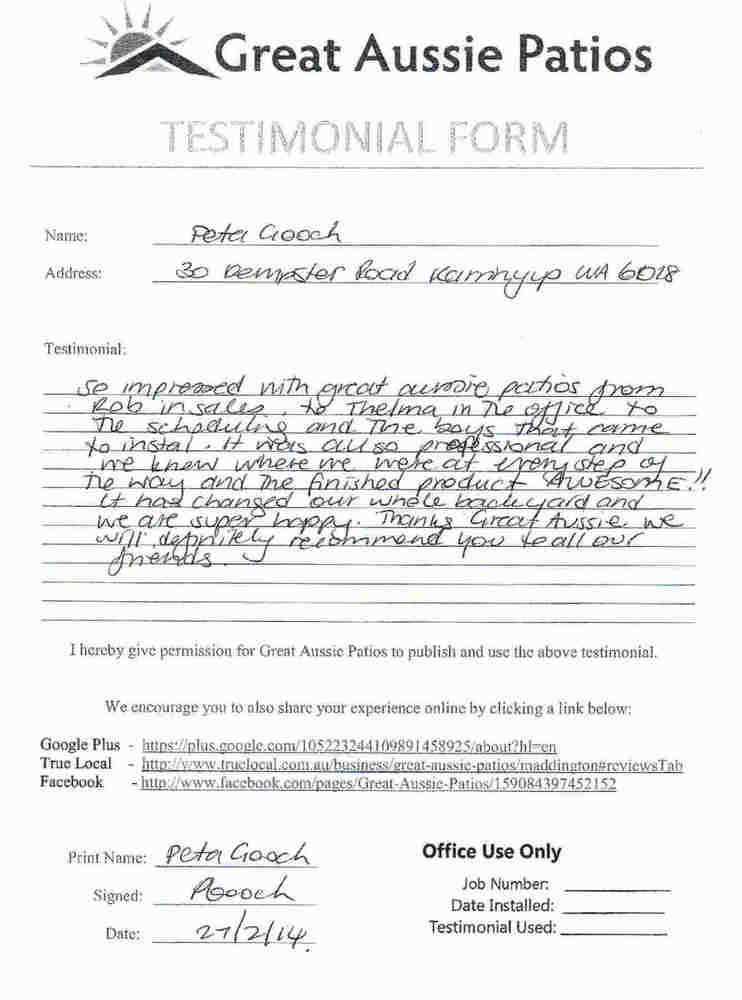 Great Aussie Patios
TESTIMONIAL FORM
Name: Peta Gooch
Address: 30 Dempster Road Karrinyup WA 6028
Testimonial:
So impressed with great aussie patios from
Rob in sales, to Thelma in The office to
The scheduling and The boys that came
to instal. It was all so professional and
we knew where we were at every step of
The way and The finished product AWESOME!!
It has changed our whole backyard and
we are super happy. Thanks Great Aussie we
will definitely recommend you to all our
friends.
I hereby give permission for Great Aussie Patios to publish and use the above testimonial.
We encourage you to also share your experience online by clicking a link below:
Google Plus - https://plus.google.com/105223244109891458925/about?hl=en
True Local - http://www.truelocal.com.au/business/great-aussie-patios/maddington#reviewsTab
Facebook - http://www.facebook.com/pages/Great-Aussie-Patios/159084397452152
Print Name: Peta Gooch
Signed: PGooch
Date: 27/2/14
Office Use Only
Job Number:
Date Installed:
Testimonial Used: